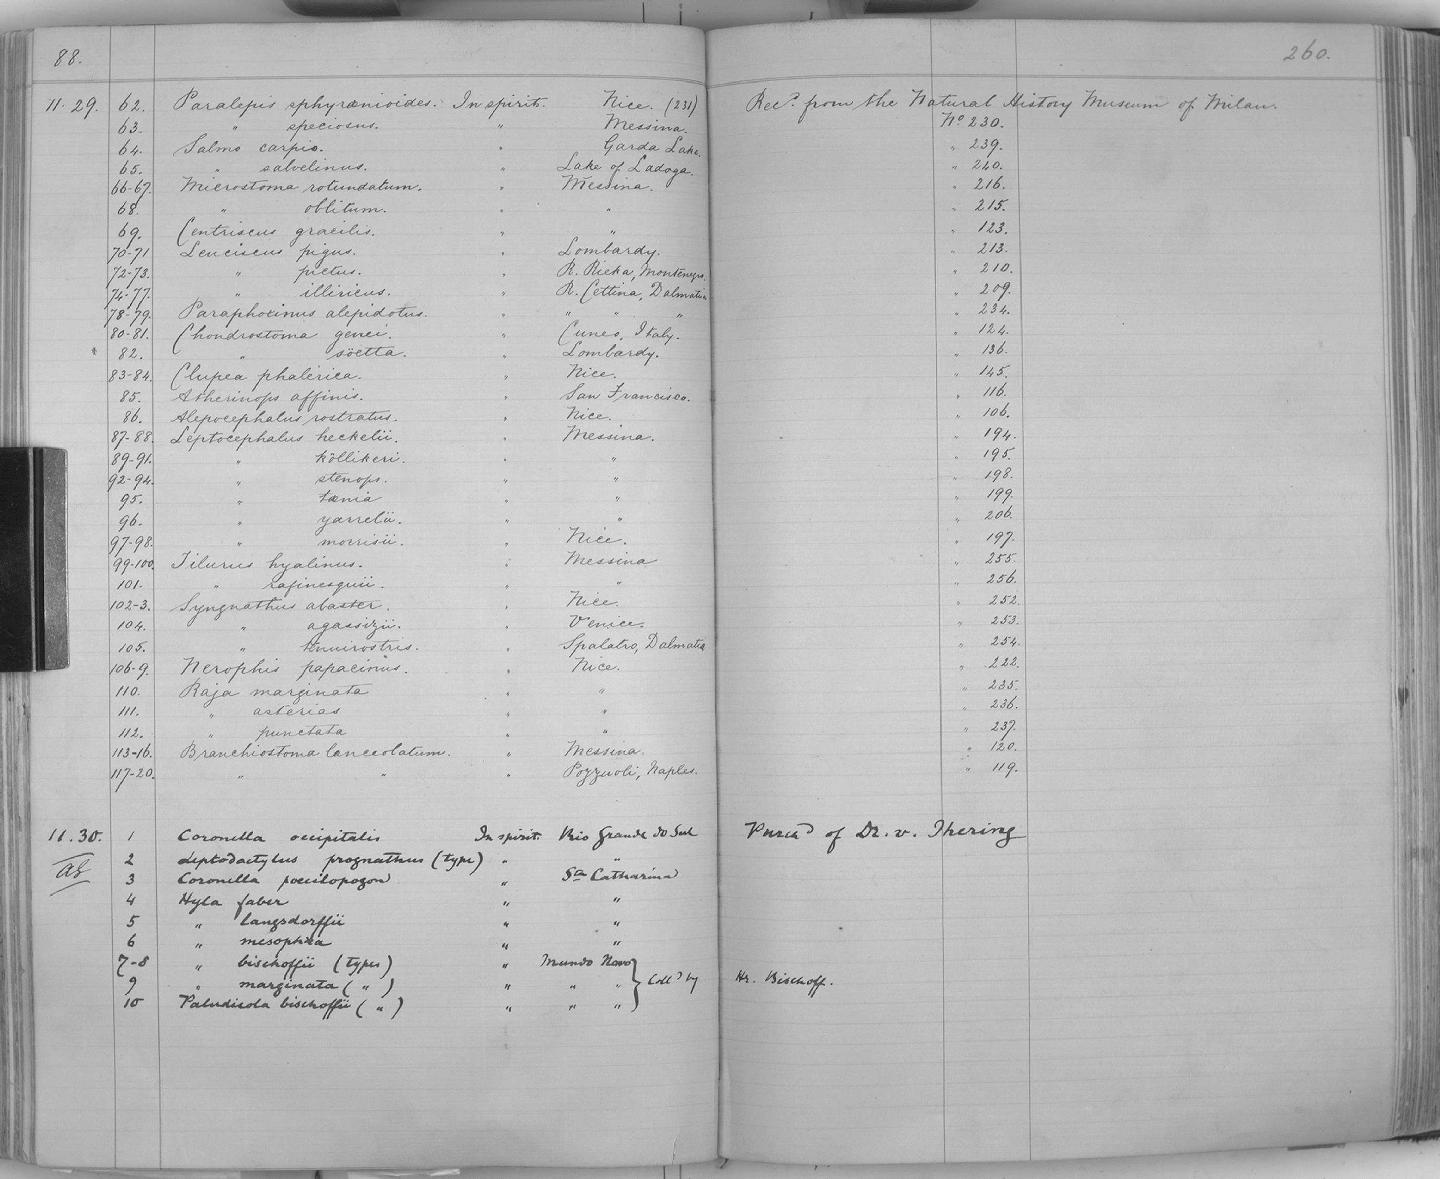 88. 260.
11. 29. 62. Paralepis sphyrænioides. In spirit. Nice. (231) Recd. from the Natural History Museum of Milan. No 230.
63. " speciosus. " Messina.
64. Salmo carpio. " Garda Lake. " 239.
65. " salvelinus. " Lake of Ladoga. " 240.
66-67. Microstoma rotundatum. " Messina. " 216.
68. " oblitum. " " " 215.
69. Centriscus gracilis. " " " 123.
70-71 Leuciscus pigus. " Lombardy. " 213.
72-73. " pictus. " R. Rieka, Montenegro. " 210.
74-77. " illiricus. " R. Cettina, Dalmatia " 209.
78-79. Paraphoxinus alepidotus. " " " " " 234.
80-81. Chondrostoma genei. " Cuneo, Italy. " 124.
82. " söetta. " Lombardy. " 136.
83-84. Clupea phalerica. " Nice. " 145.
85. Atherinops affinis. " San Francisco. " 116.
86. Alepocephalus rostratus. " Nice. " 106.
87-88. Leptocephalus heckelii. " Messina. " 194.
89-91. " köllikeri. " " " 195.
92-94. " stenops. " " " 198.
95. " tænia " " " 199.
96. " yarrelii. " " " 206.
97-98. " morrisii. " Nice. " 197.
99-100. Tilurus hyalinus. " Messina " 255.
101. " rafinesquii. " " " 256.
102-3. Syngnathus abaster. " Nice. " 252.
104. " agassizii. " Venice. " 253.
105. " tenuirostris. " Spalatro, Dalmatia " 254.
106-9. Nerophis papacinus. " Nice. " 222.
110. Raja marginata " " " 235.
111. " asterias " " " 236.
112. " punctata " " " 237.
113-16. Branchiostoma lanceolatum. " Messina. " 120.
117-20. " " " Pozzuoli, Naples. " 119.
11. 30. 1 Coronella occipitalis In spirit. Rio Grande do Sul Purcd of Dr. v. Ihering
2 Leptodactylus prognathus (type) " "
3 Coronella poecilopogon " Sa Catharina
4 Hyla faber " "
5 " langsdorffii " "
6 " mesophæa " "
7-8 " bischoffii (types) " Mundo Novo
9 " marginata ( " ) " " " Colld by Hr. Bischoff.
10 Paludicola bischoffii ( " ) " " "